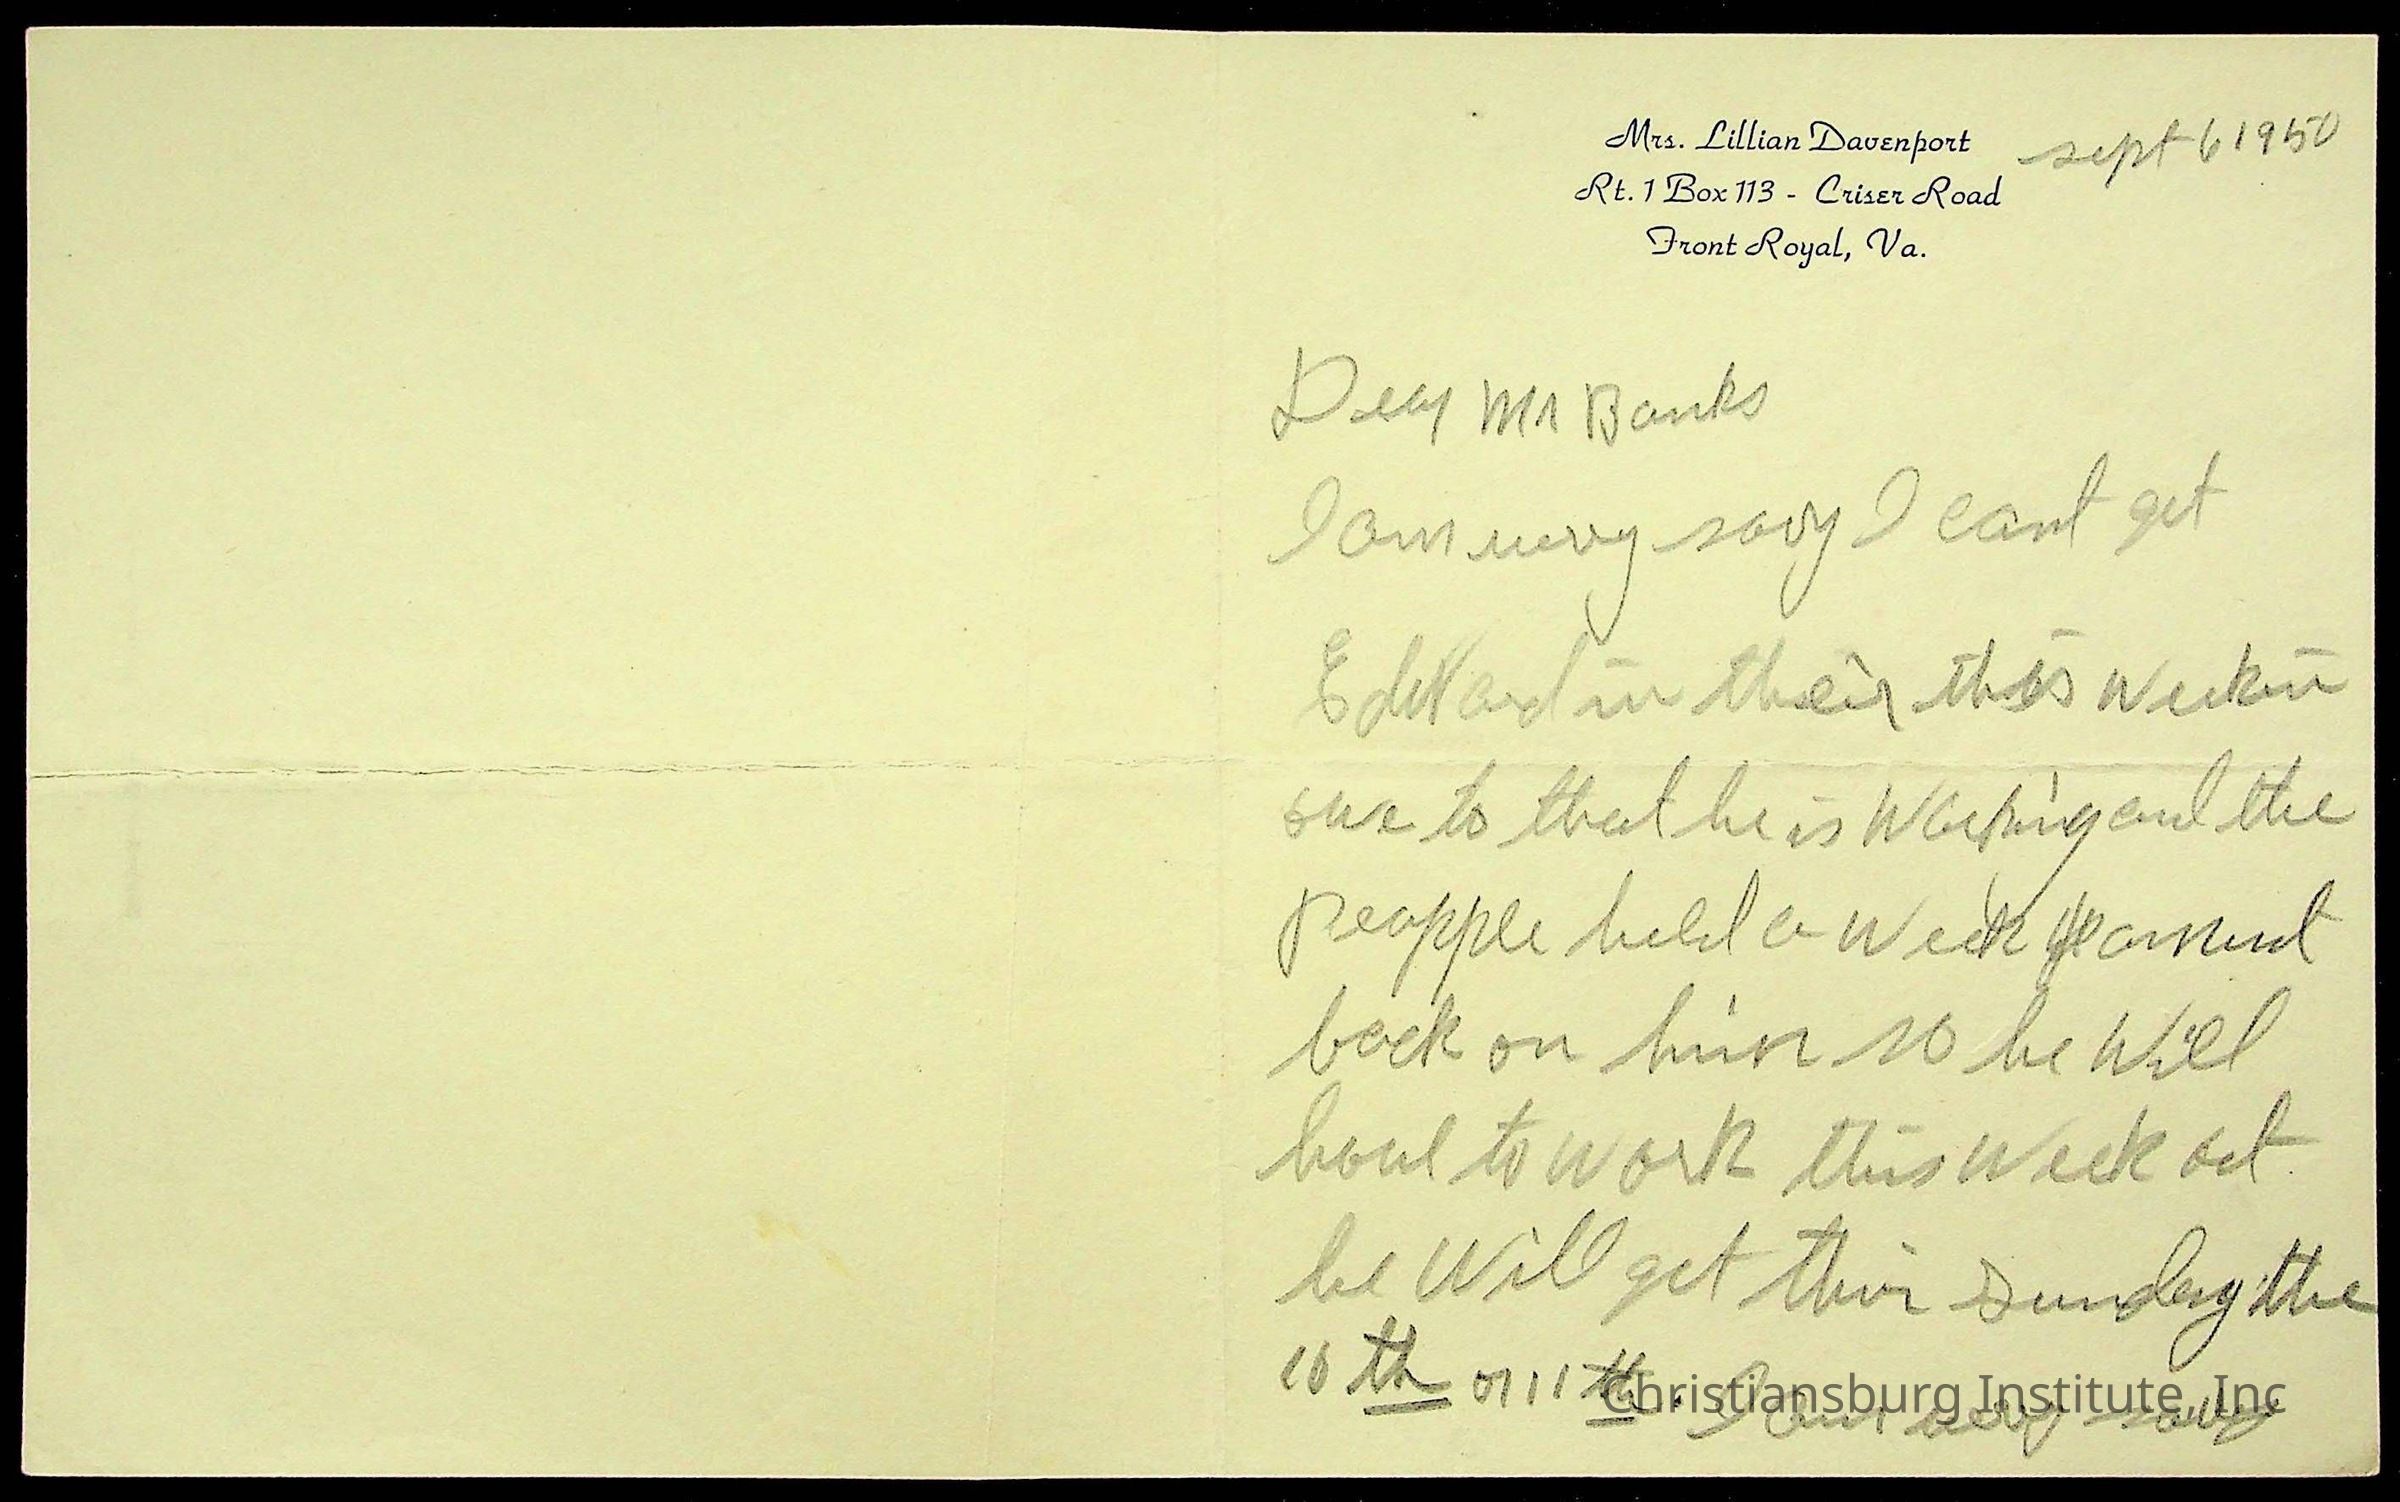 Mrs. Lillian Davenport
Rt. 1 Box 113 - Criser Road
Front Royal, Va.
sept 6 1950
Dear Mr Banks
I am very sory I cant get
Edward in their this week in
one to that he is Working and the
peapple held a week
back on him so he will
haul to work this week out
he will get thir Sunday the
10 th or 11 th. I am very sory
Christiansburg Institute, Inc